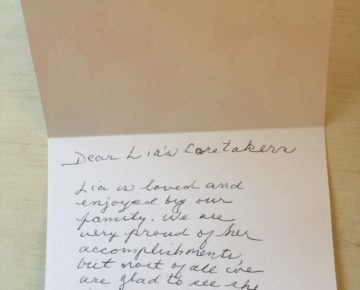 Dear Lia's Caretakers
Lia is loved and
enjoyed by our
family. We are
very proud of her
accomplishments,
but most of all we
are glad to see she